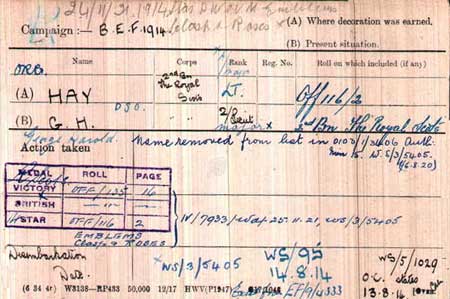 24/11/21, 1914 Star B.W.V.M Emblems
Campaign :— B.E.F. 1914 Clasp & Roses
(A) Where decoration was earned.
(B) Present situation.
Name Corps Rank Reg. No. Roll on which included (if any)
ORB. 2nd Bn The Royal Scots Major
(A) HAY LT. Off 116/2
(B) G. H. DSO. 2/Lieut 2nd Bn The Royal Scots
Major x
George Harold Name removed from list in
Action taken
MEDAL ROLL PAGE
VICTORY OFF/135 16
BRITISH —"— —"—
14 STAR OFF/116 2
EMBLEMS
Clasp & ROSES
IV/7933/ 25.11.21, WS/3/5405
Disembarkation Date x WS/3/5405 WS/9S WS/5/1029
14.8.14 O.C. states
(6 34 4r) W3138—RP433 50,000 12/17 HWV(P1947) EF/9/4533 13.8.14